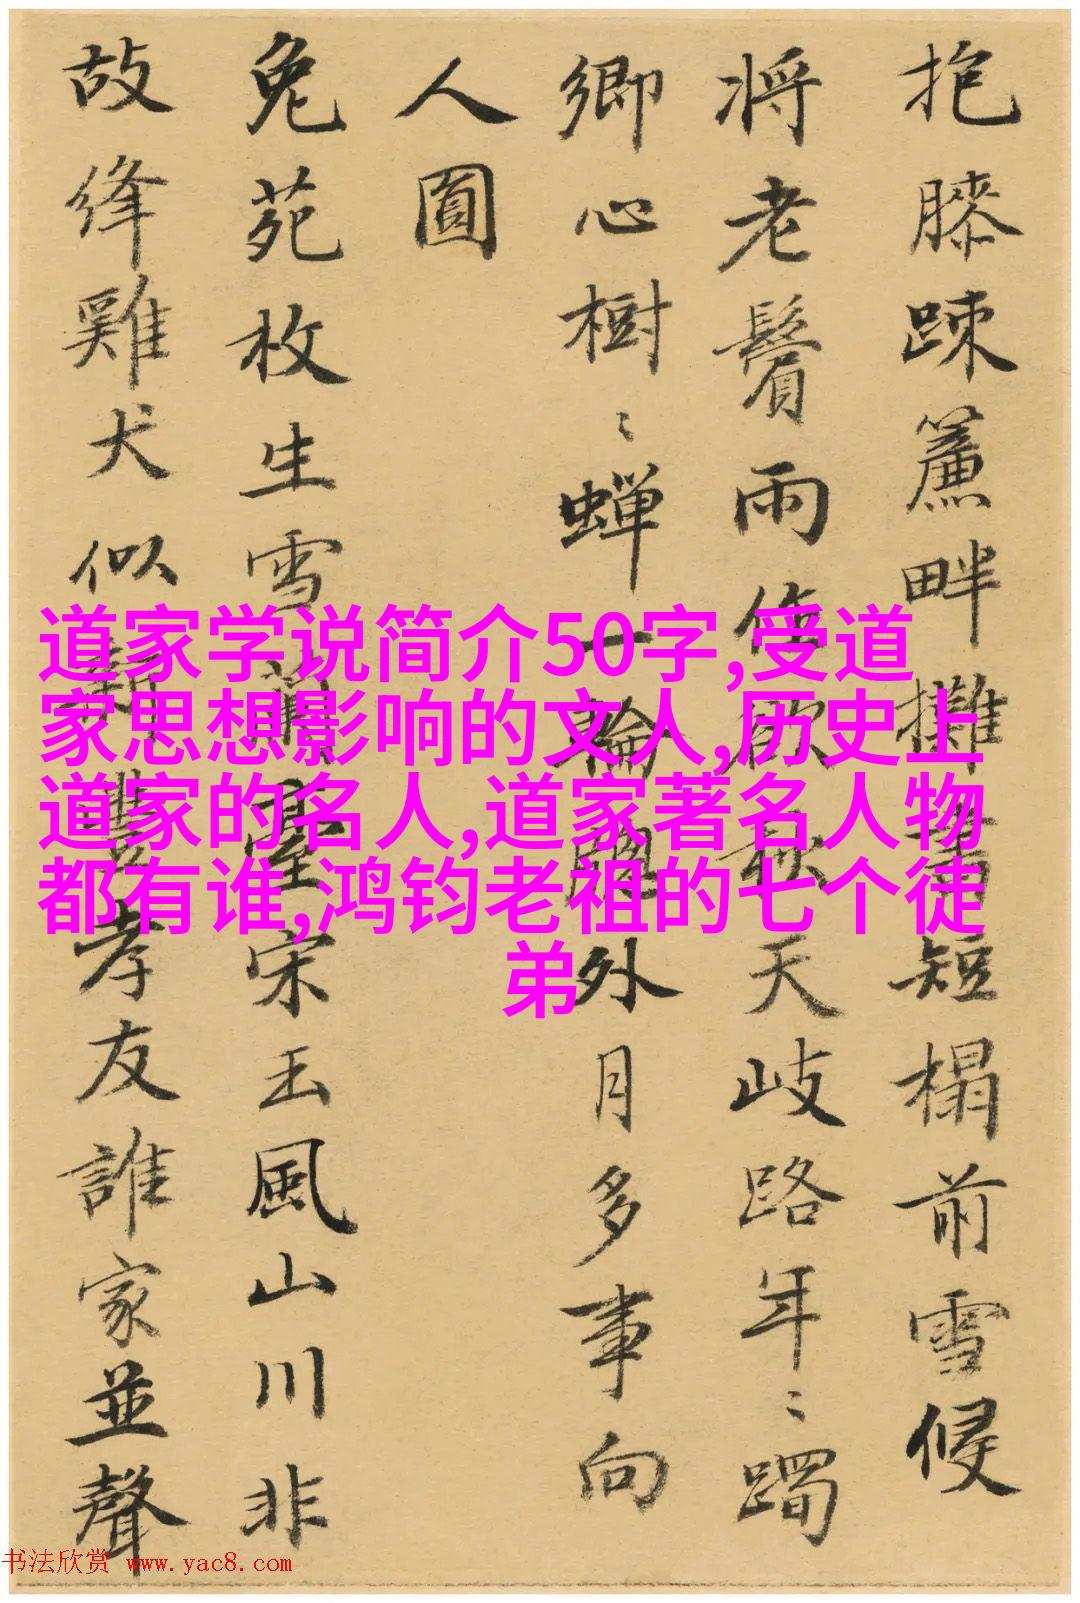 抱膝踈簾畔攤書短榻前雪侵
将老鬢雨作欲秋天岐路年〻躅
鄉心樹〻蝉一輪牕外月多事向
人圓
兔苑枚生雪蘭臺宋玉風山川非
故絳雞犬似新豐孝友誰家並聲
道家学说简介50字,受道
家思想影响的文人,历史上
道家的名人,道家著名人物
都有谁,鸿钧老祖的七个徒
弟
书法欣赏 www.yac8.com